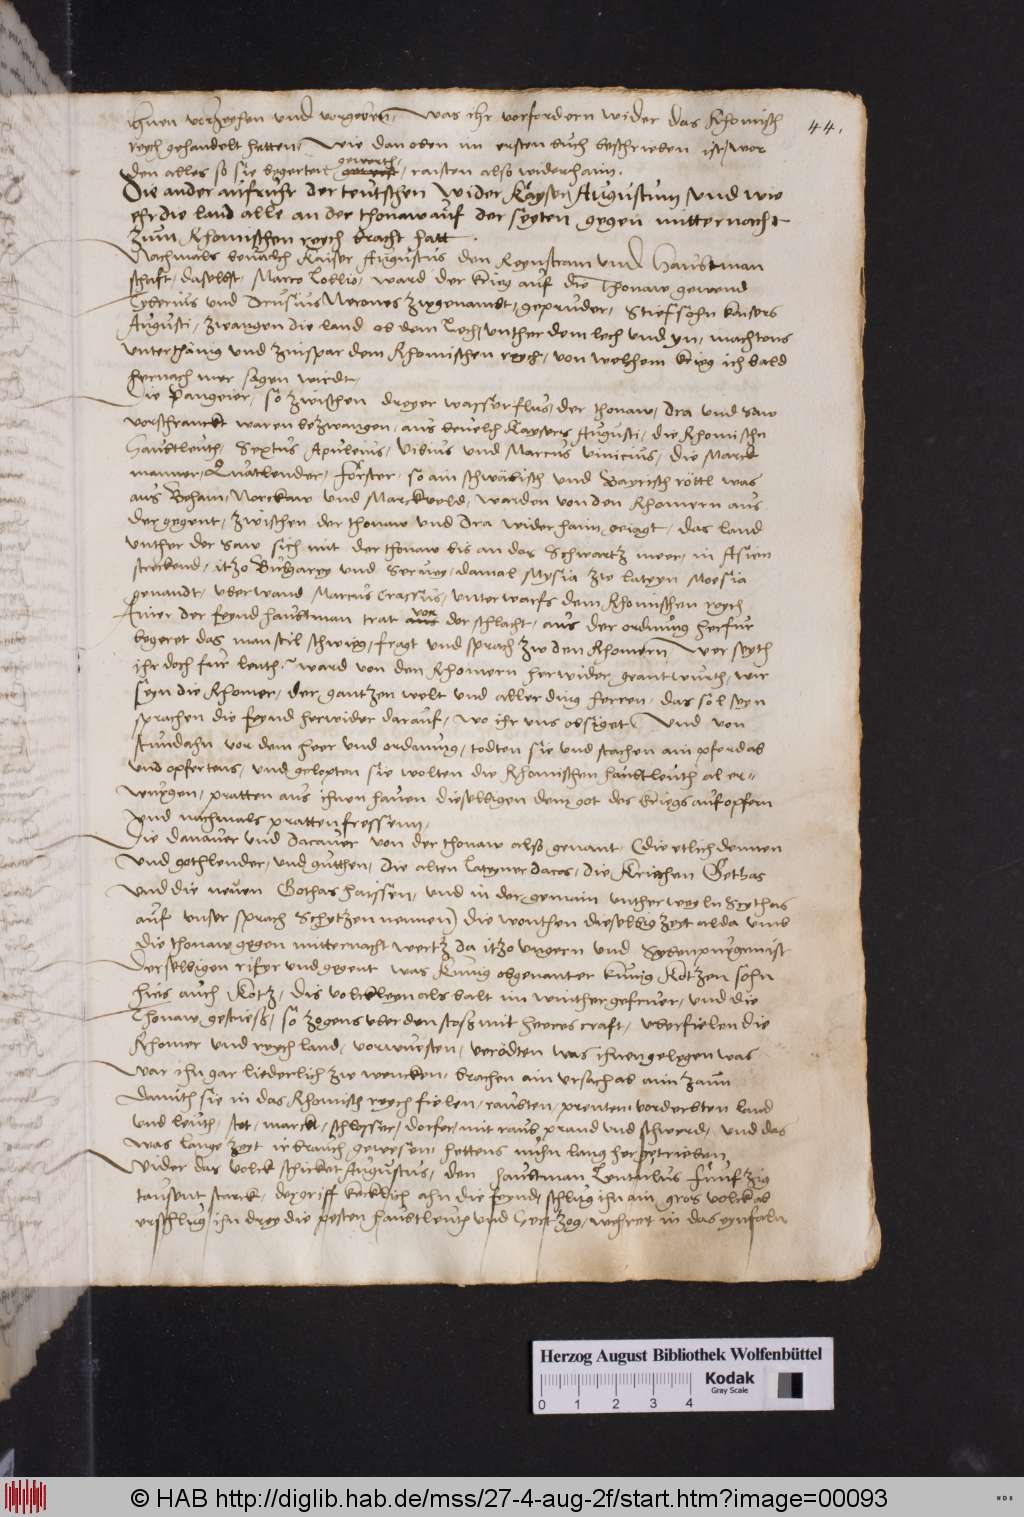 44.
ihnen vorzeyhen und vorgeben, was ihr vorfordern wider das Rhomisch
reych gehandelt hetten, wie dan oben im ersten buch beschrieben ist, wor
den alles so sie begerten gewerth, raisten also widerhaim.
Die ander aufruhr der teutschen wider Kayser Augustum, und wie
ehr die land alle an der thonaw auf der seyten gegen mitternacht
zum Rhomischen reych bracht hatt.
Nachmals bevalch Kaiser Augustus den Reynstram und haubtman
schaft, daselbst Marco Lollio, ward der krieg auf die Thonaw gewend
Tyberius und Drusus Nerones zwgenambt, gepruder, Stiefsöhn kaisers
Augusti, zwangen die land ob dem Lech, unther dem lech und yn, machtens
unterthänig und zinspar dem Rhomischen reych, von welchem krieg ich bald
hernach mer sagen wirdt.
Die Pangeier, so zwischen dreyer wasserflus, der thonaw, Dra und Saw
vorschranckt waren bezwangen, aus bevelch Kaysers Augusti, die Rhomischn
haubtleuth, Sextus Apuleius, Vibius und Marcus Vinicius, die Marck
manner, Quatlender, Förster, so ain schwäbisch und Bayrisch röttl was
aus Beham, Norckaw und Marckveld, warden von den Rhomern aus
der gegent, zwischen der thonaw und Dra widerhaim geiagt, das land
unther der Saw sich mit der thonaw bis an das Schwartz meer, in Asien
streckend, itzo Bulgarey und Servey, damal Mysia zw lateyn Moesia
genandt, uberwand Marcus Crassus, unterwarfs dem Rhomischen reych
Ainer der feynd haubtman trat vor der schlacht, aus der ordnung herfur
begeret das man stil schwieg, fragt und sprach zw den Rhomern, Wer seyth
ihr doch für leuth? ward von den Rhomern herwider geantwurth, wir
seyn die Rhomer, der gantzen welt und aller ding herren, das sol seyn
sprachen die feynd herwider darauf, wo ihr uns obsiget, Und von
stundahn vor dem heer und ordnung, todten sie und stachen ain pferd ab
und opfertens, und gelobten sie wolten die Rhomischen haubtleuth al er-
wurgen, pratten aus ihnen hauen dieselbigen dem got des kriegs aufopfern
und nachmals pratten fressenn.
Die danauer und Dacauer von der thonaw also genant, (die etlich dennen
und gothlender, und gutthen, die alten lateyner daces, die Kriechen Gethas
und die neuen Gothas haissen, und in der gemain unther weyln Scythas
auf unser sprach Schytzen nennen) die wonthen dieselbig zeyt alda umb
die thonaw gegen mitternacht wertz da itzo ungern und Sybenpurgen ist
Derselbigen rifyr und gegent was Künig obgenanter künig Kotzen sohn
hies auch Kotz, dis volck leyn als balt im winther gefruer, und die
Thonaw gestiess, so zogens uber den stoss mit heeres craft, uberfielen die
Rhomer und reych land, vorwüesten, verödten was ihnen gelegen was
war ihn gar liederlich zw wencken, brachen ain ursach ab aim zaun
damith sie in das Rhomisch reych fielen, raubten, prenten vorderbten land
und leuth, stet, marckt, schlosser, dorfer, mit raub, prand und schwerd, und das
was lange zeyt ir brauch gewesen, hettens nuhn lang her getrieben
Wider das volck schicket Augustus, den haubtman Lentulus funfzig
tausent starck, der griff kecklich ahn die feynd, schlug ihn ain gros volck ab
erschlug ihn drey die pesten haubtleuth und Hertzog, wehret in das eynfaln
Herzog August Bibliothek Wolfenbüttel
0 1 2 3 4
Kodak
Gray Scale
© HAB http://diglib.hab.de/mss/27-4-aug-2f/start.htm?image=00093
WDB